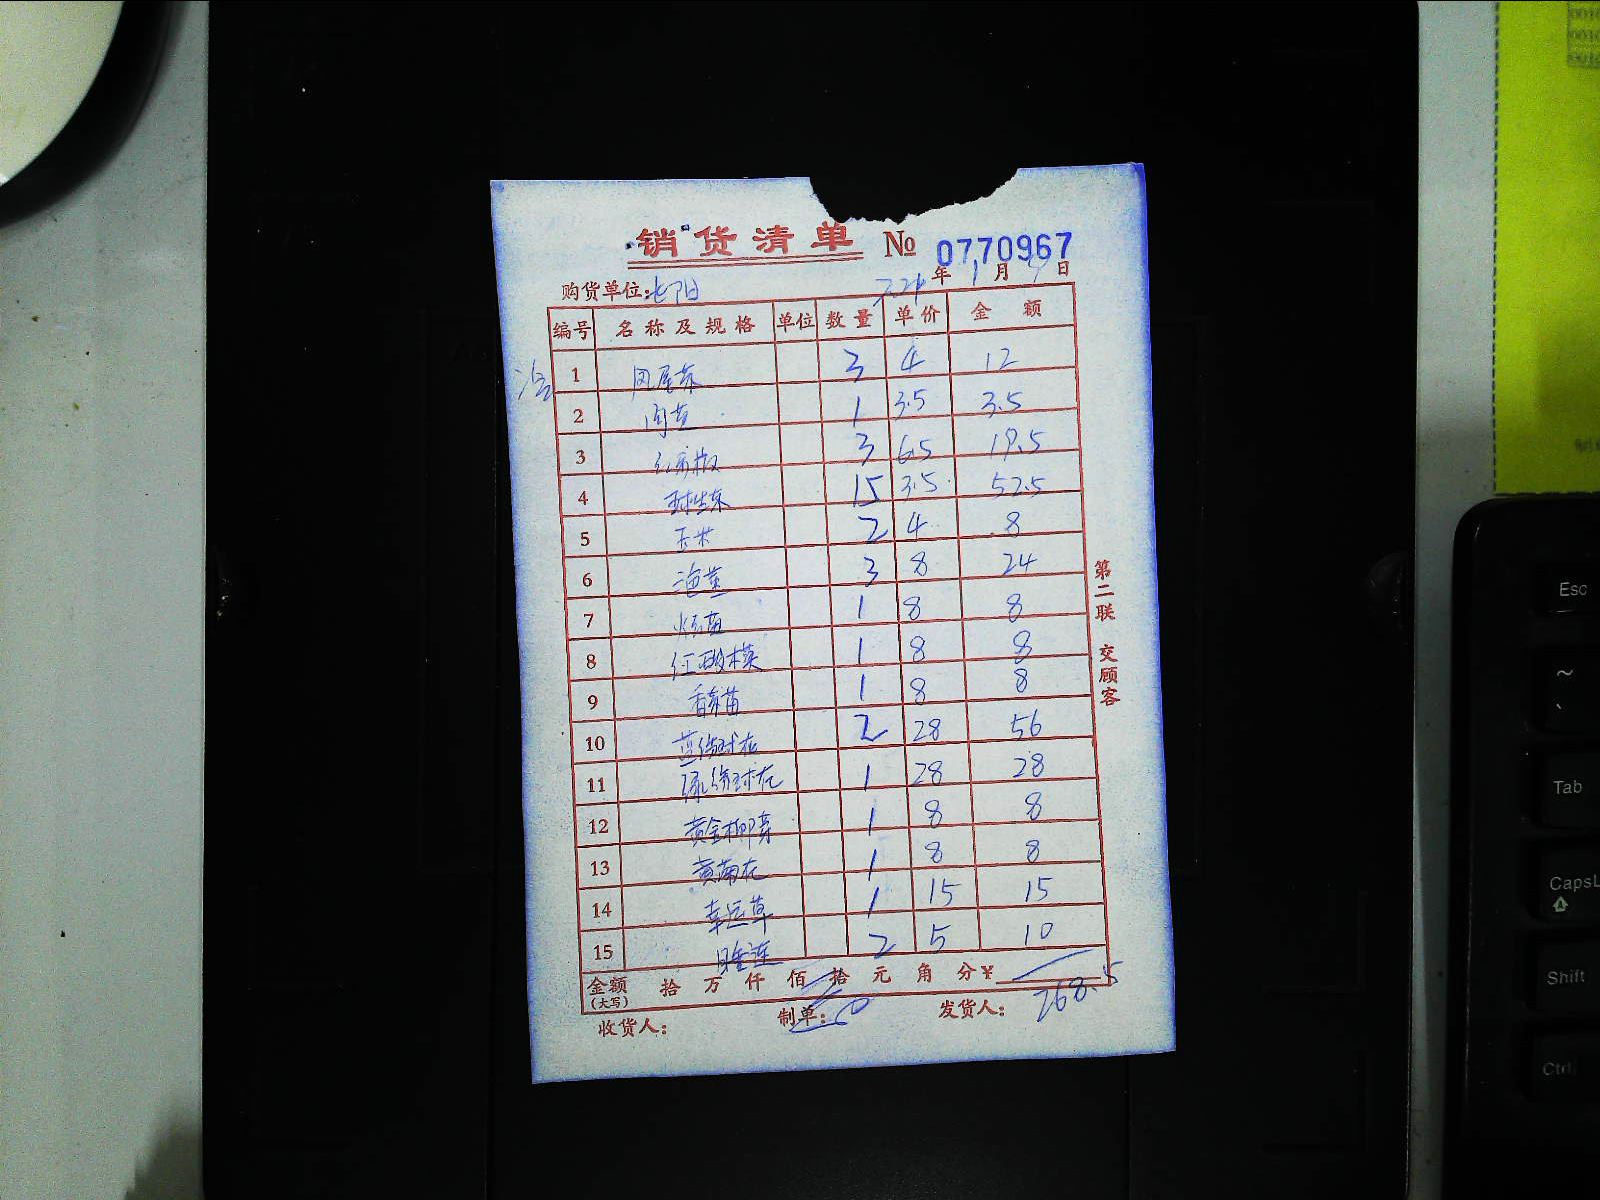 销货清单 № 0770967
购货单位: 年 1 月 日
编号 名称及规格 单位 数量 单价 金额
1 凤尾 3 4 12
2 1 3.5 3.5
3 3 6.5 19.5
4 15 3.5 52.5
5 玉米 2 4 8
6 3 8 24
7 1 8 8
8 1 8 8
9 1 8 8
10 蓝绣球花 2 28 56
11 绿绣球花 1 28 28
12 黄金柳 1 8 8
13 1 8 8
14 幸运草 1 15 15
15 睡莲 2 5 10
金额(大写) 拾 万 仟 佰 拾 元 角 分 ¥
268.5
收货人: 制单: 发货人:
第二联 交顾客
Esc
~
Tab
CapsL
Shift
Ctrl